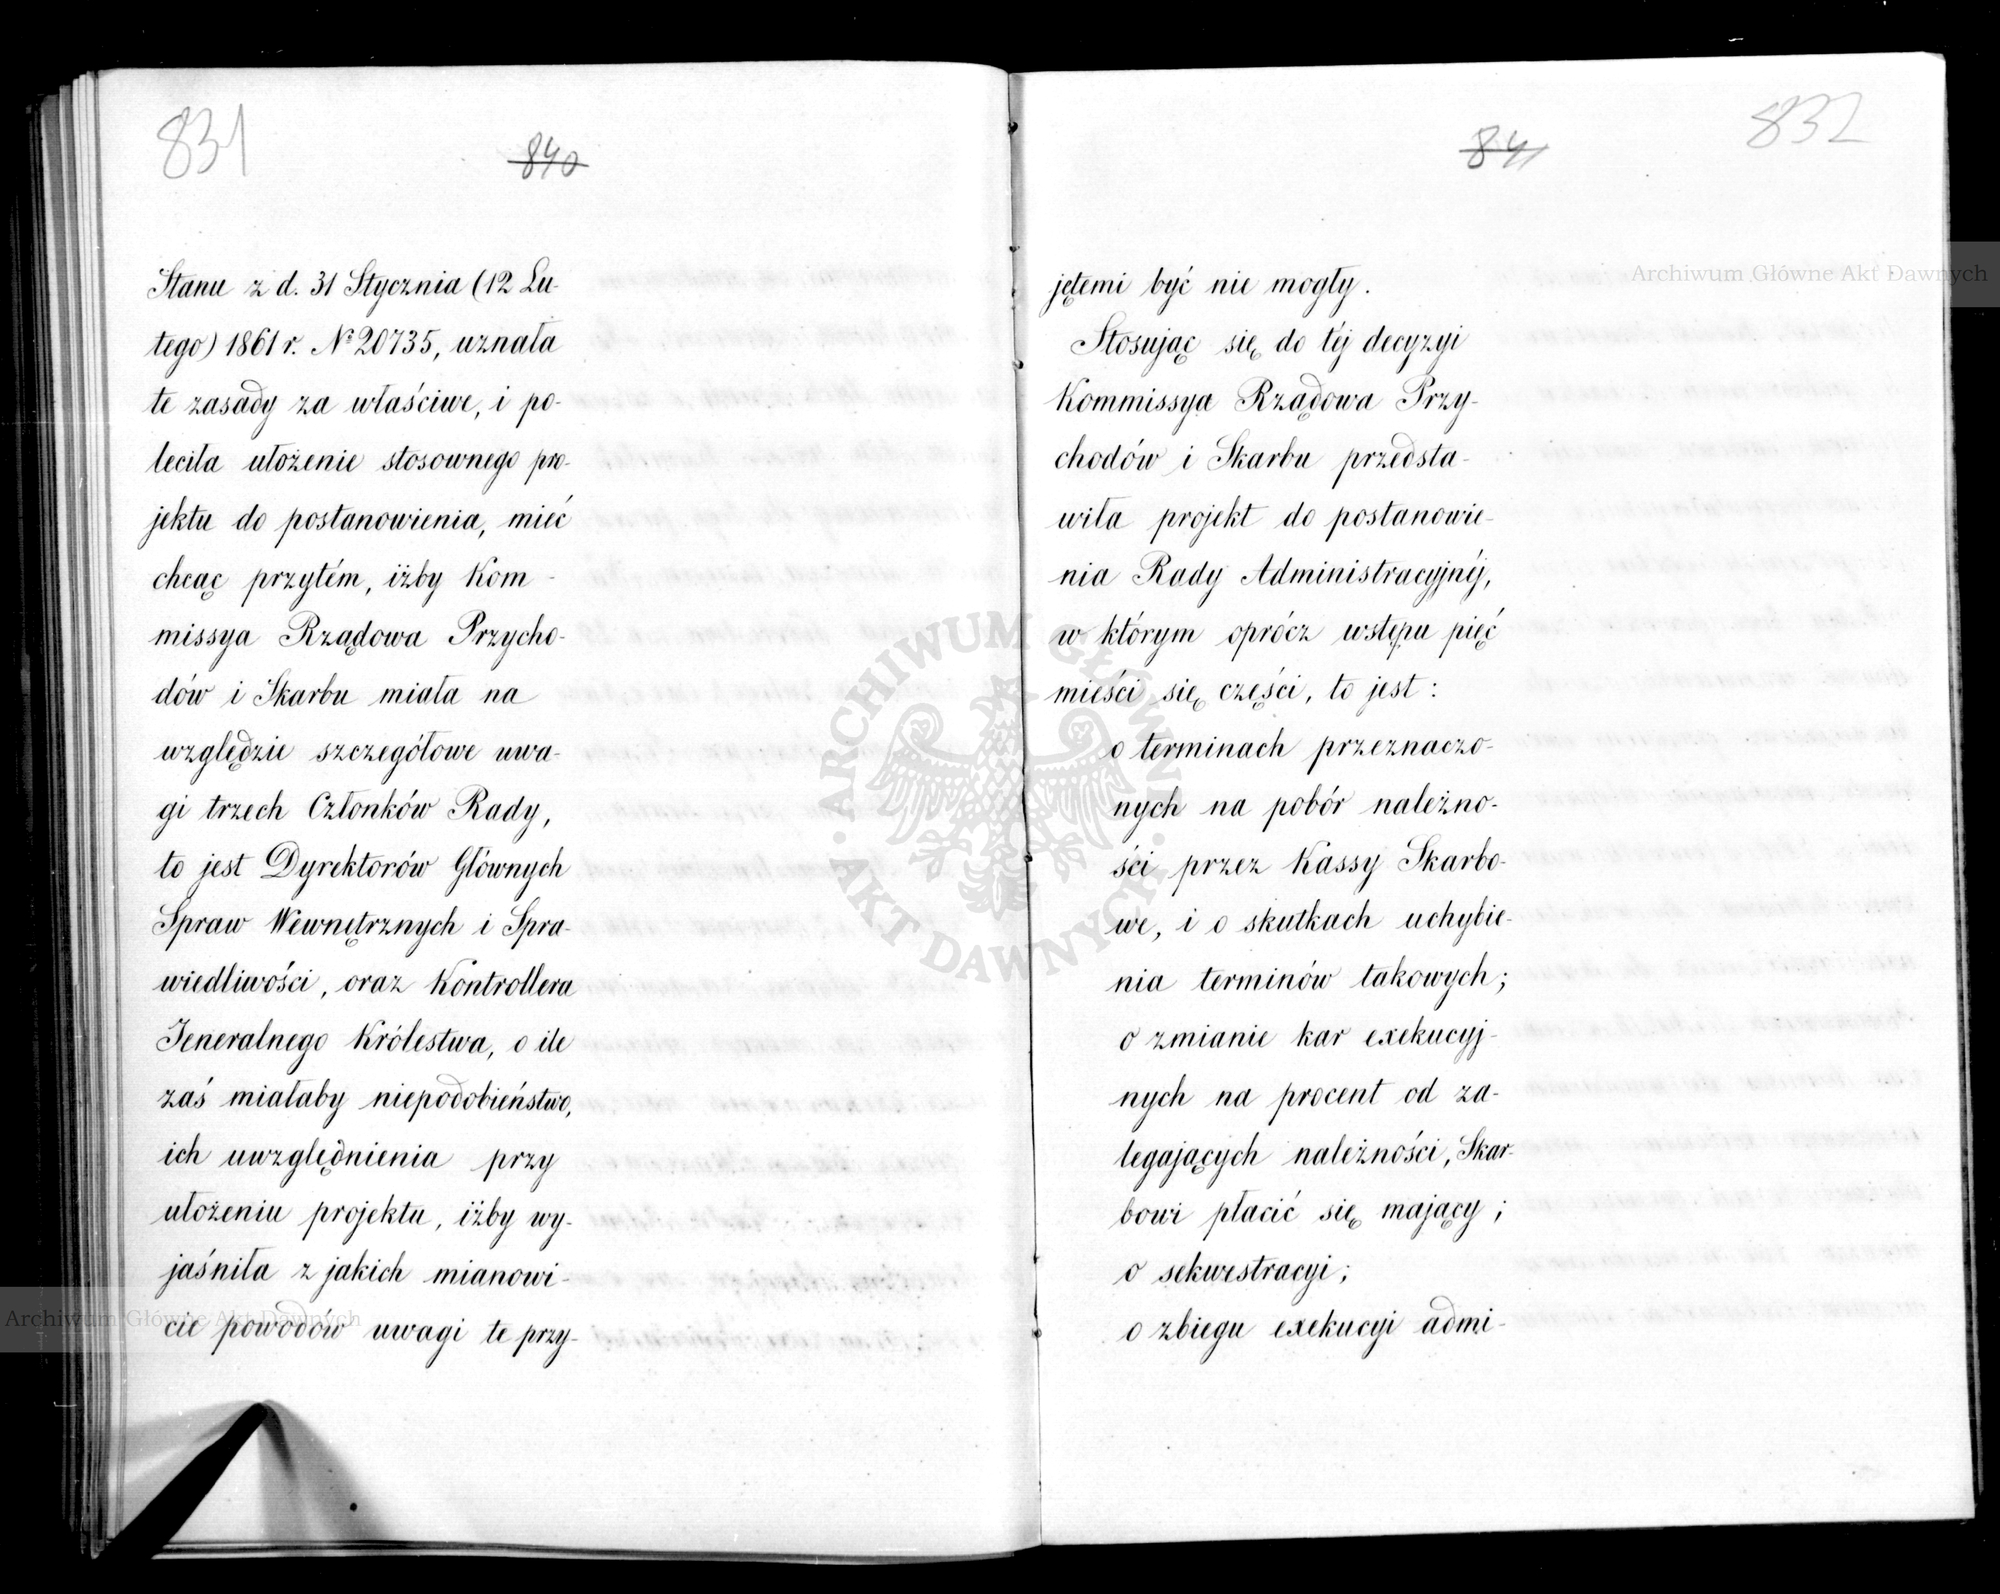 831
840
Stanu z d. 31 Stycznia (12 Lu-
tego) 1861 r. Nº 20735, uznała
te zasady za właściwe, i po-
leciła ułożenie stosownego pro-
jektu do postanowienia, mieć
chcąc przytém, iżby Kom-
missya Rządowa Przycho-
dów i Skarbu miała na
względzie szczegółowe uwa-
gi trzech Członków Rady,
to jest Dyrektorów Głównych
Spraw Wewnętrznych i Spra-
wiedliwości, oraz Kontrollera
Jeneralnego Królestwa, o ile
zaś miałaby niepodobieństwo,
ich uwzględnienia przy
ułożeniu projektu, iżby wy-
jaśniła z jakich mianowi-
cie powodów uwagi te przy-
841
832
jętemi być nie mogły.
Stosując się do téj decyzyi
Kommissya Rządowa Przy-
chodów i Skarbu przedsta-
wiła projekt do postanowie-
nia Rady Administracyjnéj,
w którym oprócz wstępu pięć
mieści się części, to jest:
o terminach przeznaczo-
nych na pobór należno-
ści przez Kassy Skarbo-
we, i o skutkach uchybie-
nia terminów takowych;
o zmianie kar exekucyj-
nych na procent od za-
legających należności, Skar-
bowi płacić się mający;
o sekwestracyi;
o zbiegu exekucyi admi-
Archiwum Główne Akt Dawnych
Archiwum Główne Akt Dawnych
ARCHIWUM GŁÓWNE AKT DAWNYCH